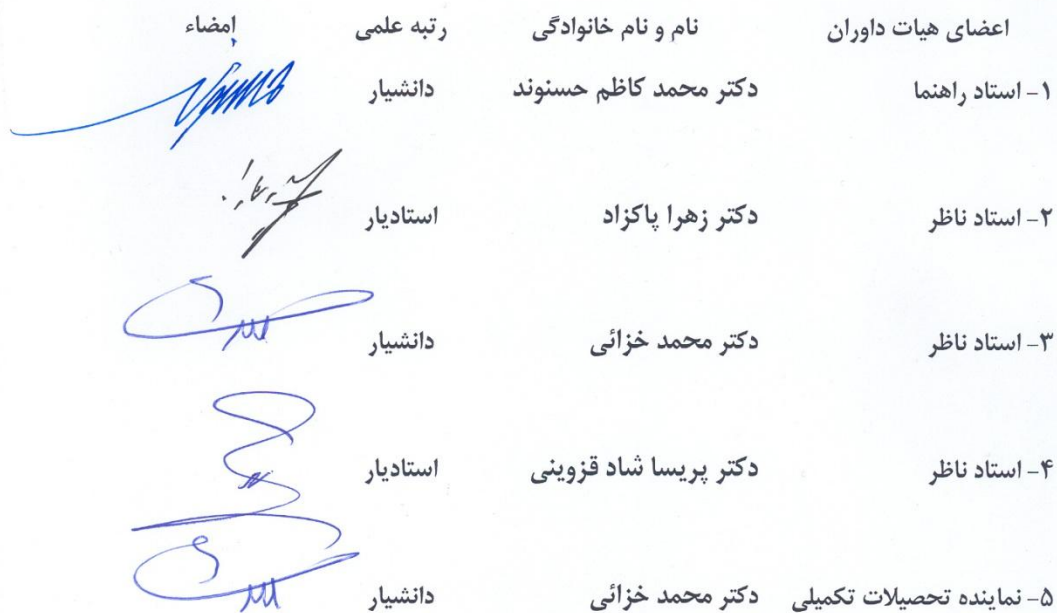 اعضای هیات داوران نام و نام خانوادگی رتبه علمی امضاء
۱- استاد راهنما دکتر محمد کاظم حسنوند دانشیار
۲- استاد ناظر دکتر زهرا پاکزاد استادیار
۳- استاد ناظر دکتر محمد خزائی دانشیار
۴- استاد ناظر دکتر پریسا شاد قزوینی استادیار
۵- نماینده تحصیلات تکمیلی دکتر محمد خزائی دانشیار